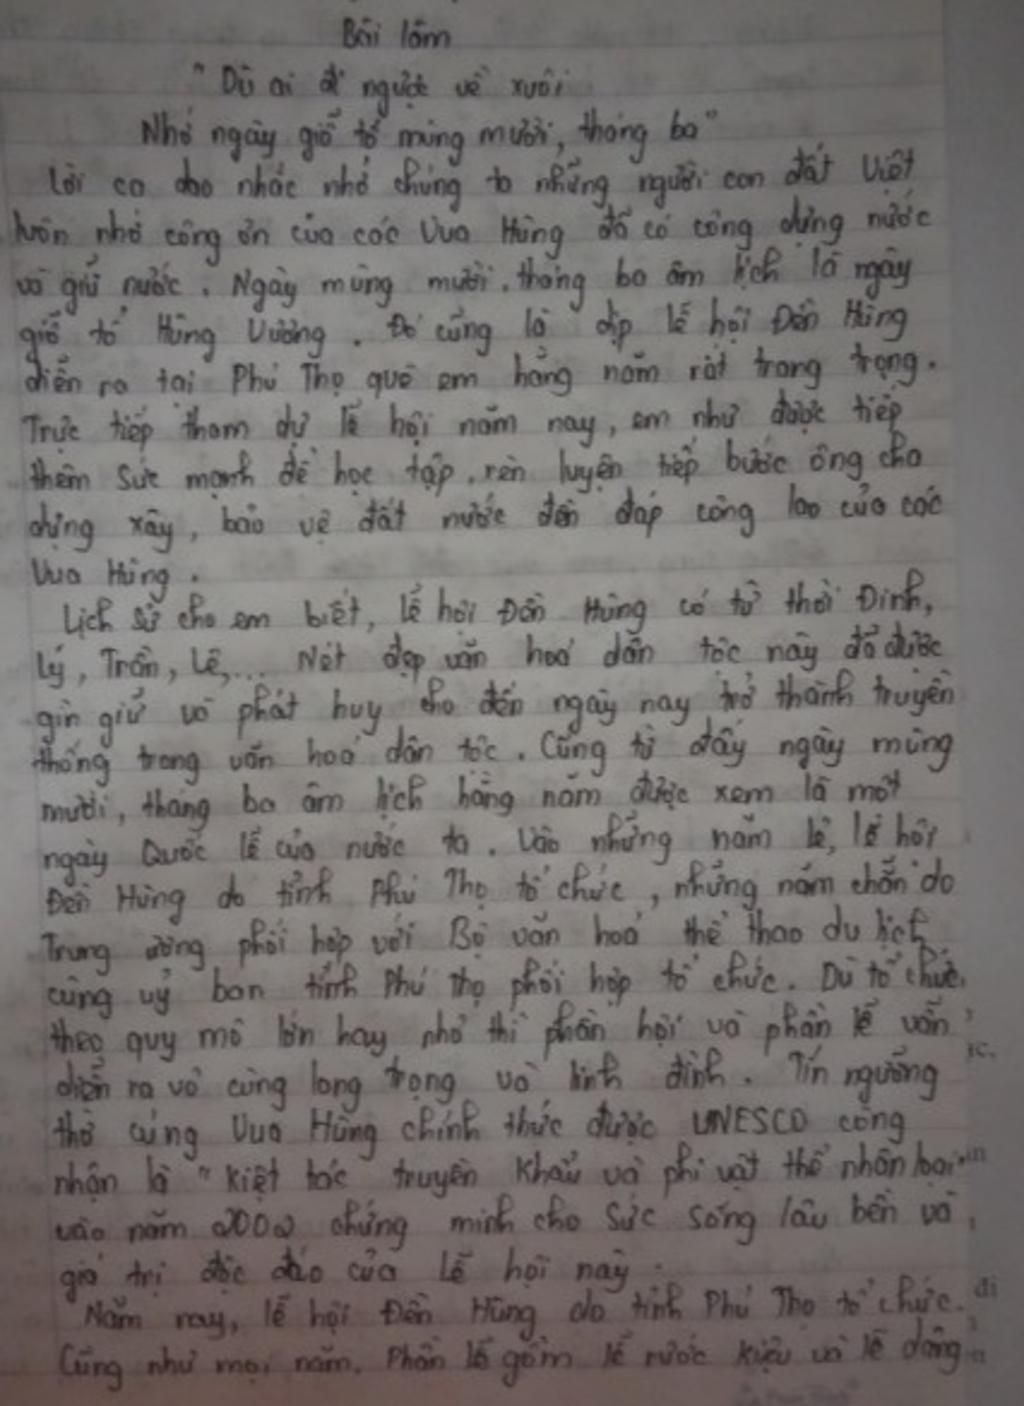 Bài làm
"Dù ai đi ngược về xuôi
Nhớ ngày giỗ tổ mùng mười, tháng ba"
Lời ca dao nhắc nhở chúng ta những người con đất Việt
luôn nhớ công ơn của các Vua Hùng đã có công dựng nước
và giữ nước. Ngày mùng mười, tháng ba âm lịch là ngày
giỗ tổ Hùng Vương. Đó cũng là dịp lễ hội Đền Hùng
diễn ra tại Phú Thọ quê em hằng năm rất trang trọng.
Trực tiếp tham dự lễ hội năm nay, em như được tiếp
thêm sức mạnh để học tập, rèn luyện tiếp bước ông cha
dựng xây, bảo vệ đất nước đền đáp công lao của các
Vua Hùng.
Lịch sử cho em biết, lễ hội Đền Hùng có từ thời Đinh,
Lý, Trần, Lê,... Nét đẹp văn hoá dân tộc này đã được
gìn giữ và phát huy cho đến ngày nay trở thành truyền
thống trong văn hoá dân tộc. Cũng từ đấy ngày mùng
mười, tháng ba âm lịch hằng năm được xem là một
ngày Quốc lễ của nước ta. Vào những năm lẻ, lễ hội
Đền Hùng do tỉnh Phú Thọ tổ chức, những năm chẵn do
Trung ương phối hợp với Bộ văn hoá thể thao du lịch
cùng uỷ ban tỉnh Phú Thọ phối hợp tổ chức. Dù tổ chức
theo quy mô lớn hay nhỏ thì phần hội và phần lễ vẫn
diễn ra vô cùng long trọng và linh đình. Tín ngưỡng
thờ cúng Vua Hùng chính thức được UNESCO công
nhận là "Kiệt tác truyền khẩu và phi vật thể nhân loại"
vào năm 2002 chứng minh cho sức sống lâu bền và
giá trị độc đáo của lễ hội này.
Năm nay, lễ hội Đền Hùng do tỉnh Phú Thọ tổ chức.
Cũng như mọi năm. Phần lễ gồm lễ rước kiệu và lễ dâng